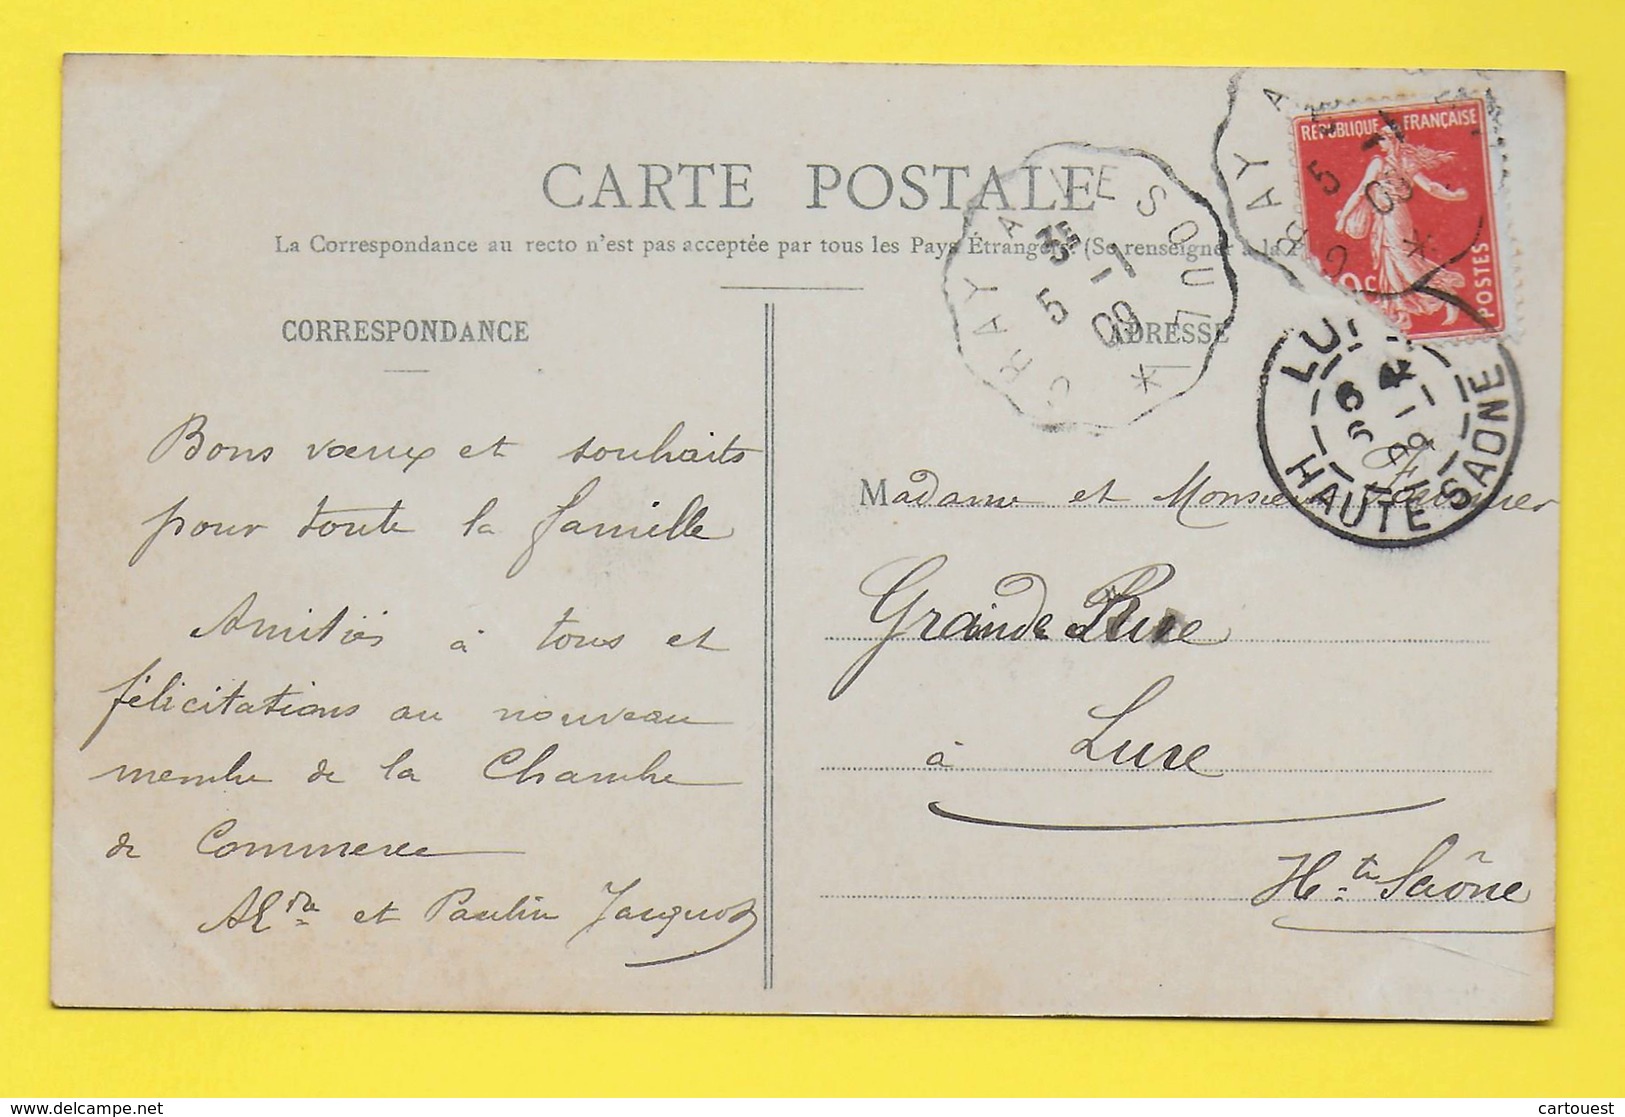 CARTE POSTALE
La Correspondance au recto n'est pas acceptée par tous les Pays Étrangers. (Se renseigner à la P
CORRESPONDANCE
ADRESSE
GRAY A VESOUL *
5 -1
09
GRAY A
5 -1
09
RÉPUBLIQUE FRANÇAISE
POSTES
LU
HAUTE SAONE
Bons vœux et souhaits
pour toute la famille
Amitiés à tous et
félicitations au nouveau
membre de la Chambre
de Commerce
et Paulin Jacquot
Madame et Monsieur
Grande Rue
à Lure
Hte Saône
cartouest